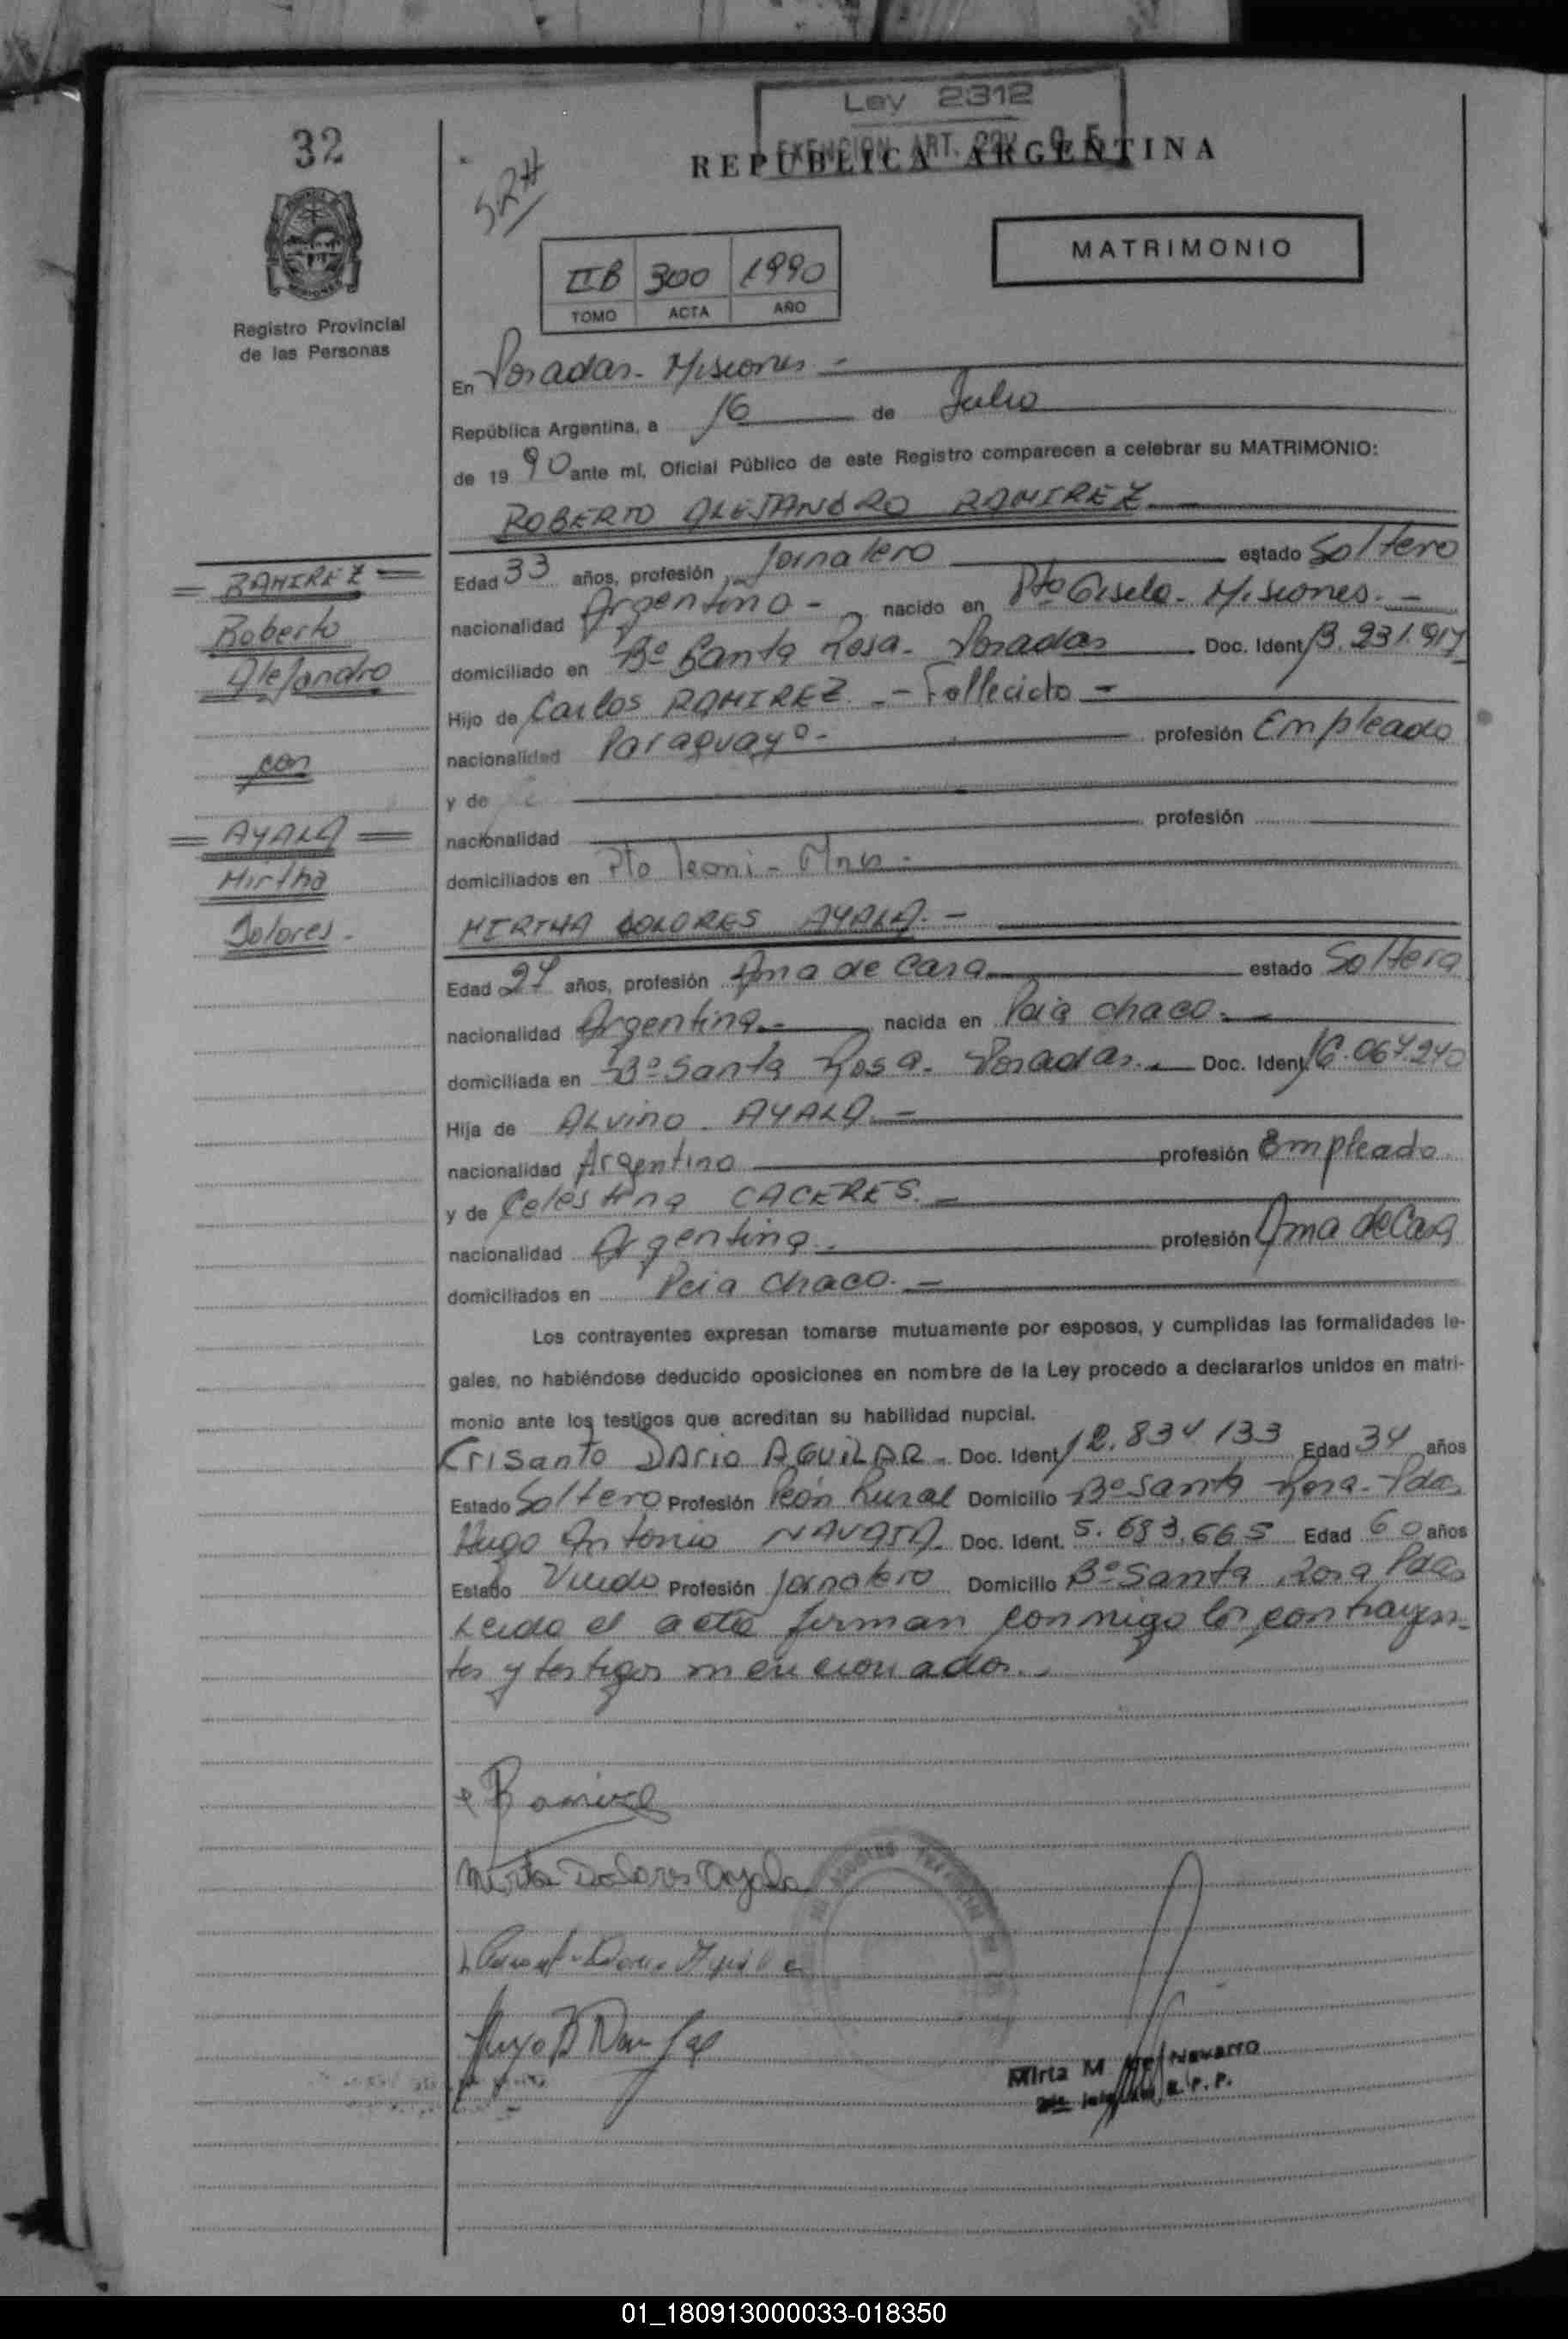 Ley 2312
EXENCION ART.
32
REPUBLICA ARGENTINA
MATRIMONIO
IIB 300 1990
TOMO ACTA AÑO
Registro Provincial
de las Personas
En Posadas - Misiones -
República Argentina, a 16 de Julio
de 19 90 ante mí, Oficial Público de este Registro comparecen a celebrar su MATRIMONIO:
ROBERTO ALEJANDRO RAMIREZ
= RAMIREZ =
Roberto
Alejandro
con
= AYALA =
Mirtha
Dolores -
Edad 33 años, profesión Jornalero estado Soltero
nacionalidad Argentino - nacido en Pto Gisela - Misiones. -
domiciliado en Bº Santa Rosa - Posadas Doc. Ident. 13.231.917
Hijo de Carlos RAMIREZ. - - Fallecido -
nacionalidad Paraguayo - profesión Empleado
y de
nacionalidad profesión
domiciliados en Pto Leoni - Mnes -
MIRTHA DOLORES AYALA. -
Edad 27 años, profesión Ama de Casa estado Soltera
nacionalidad Argentina. - nacida en Pcia Chaco. -
domiciliada en Bº Santa Rosa - Posadas. - Doc. Ident. 16.067.240
Hija de ALvino AYALA. -
nacionalidad Argentino profesión Empleado
y de Celestina CACERES. -
nacionalidad Argentina. profesión Ama de Casa
domiciliados en Pcia Chaco. -
Los contrayentes expresan tomarse mutuamente por esposos, y cumplidas las formalidades le-
gales, no habiéndose deducido oposiciones en nombre de la Ley procedo a declararlos unidos en matri-
monio ante los testigos que acreditan su habilidad nupcial.
Crisanto DARio AGUiLAR - Doc. Ident. 12.834.133 Edad 34 años
Estado Soltero Profesión Peón Rural Domicilio Bº Santa Rosa - Pdas
Hugo Antonio Doc. Ident. 5.683.665 Edad 60 años
Estado Viudo Profesión Jornalero Domicilio Bº Santa Rosa Pdas
Leida el acta firman conmigo los contrayen-
tes y testigos mencionados. -
Ramirez
Mirta Dolores Ayala
Mirta M Navarro
R. P. P.
01_180913000033-018350